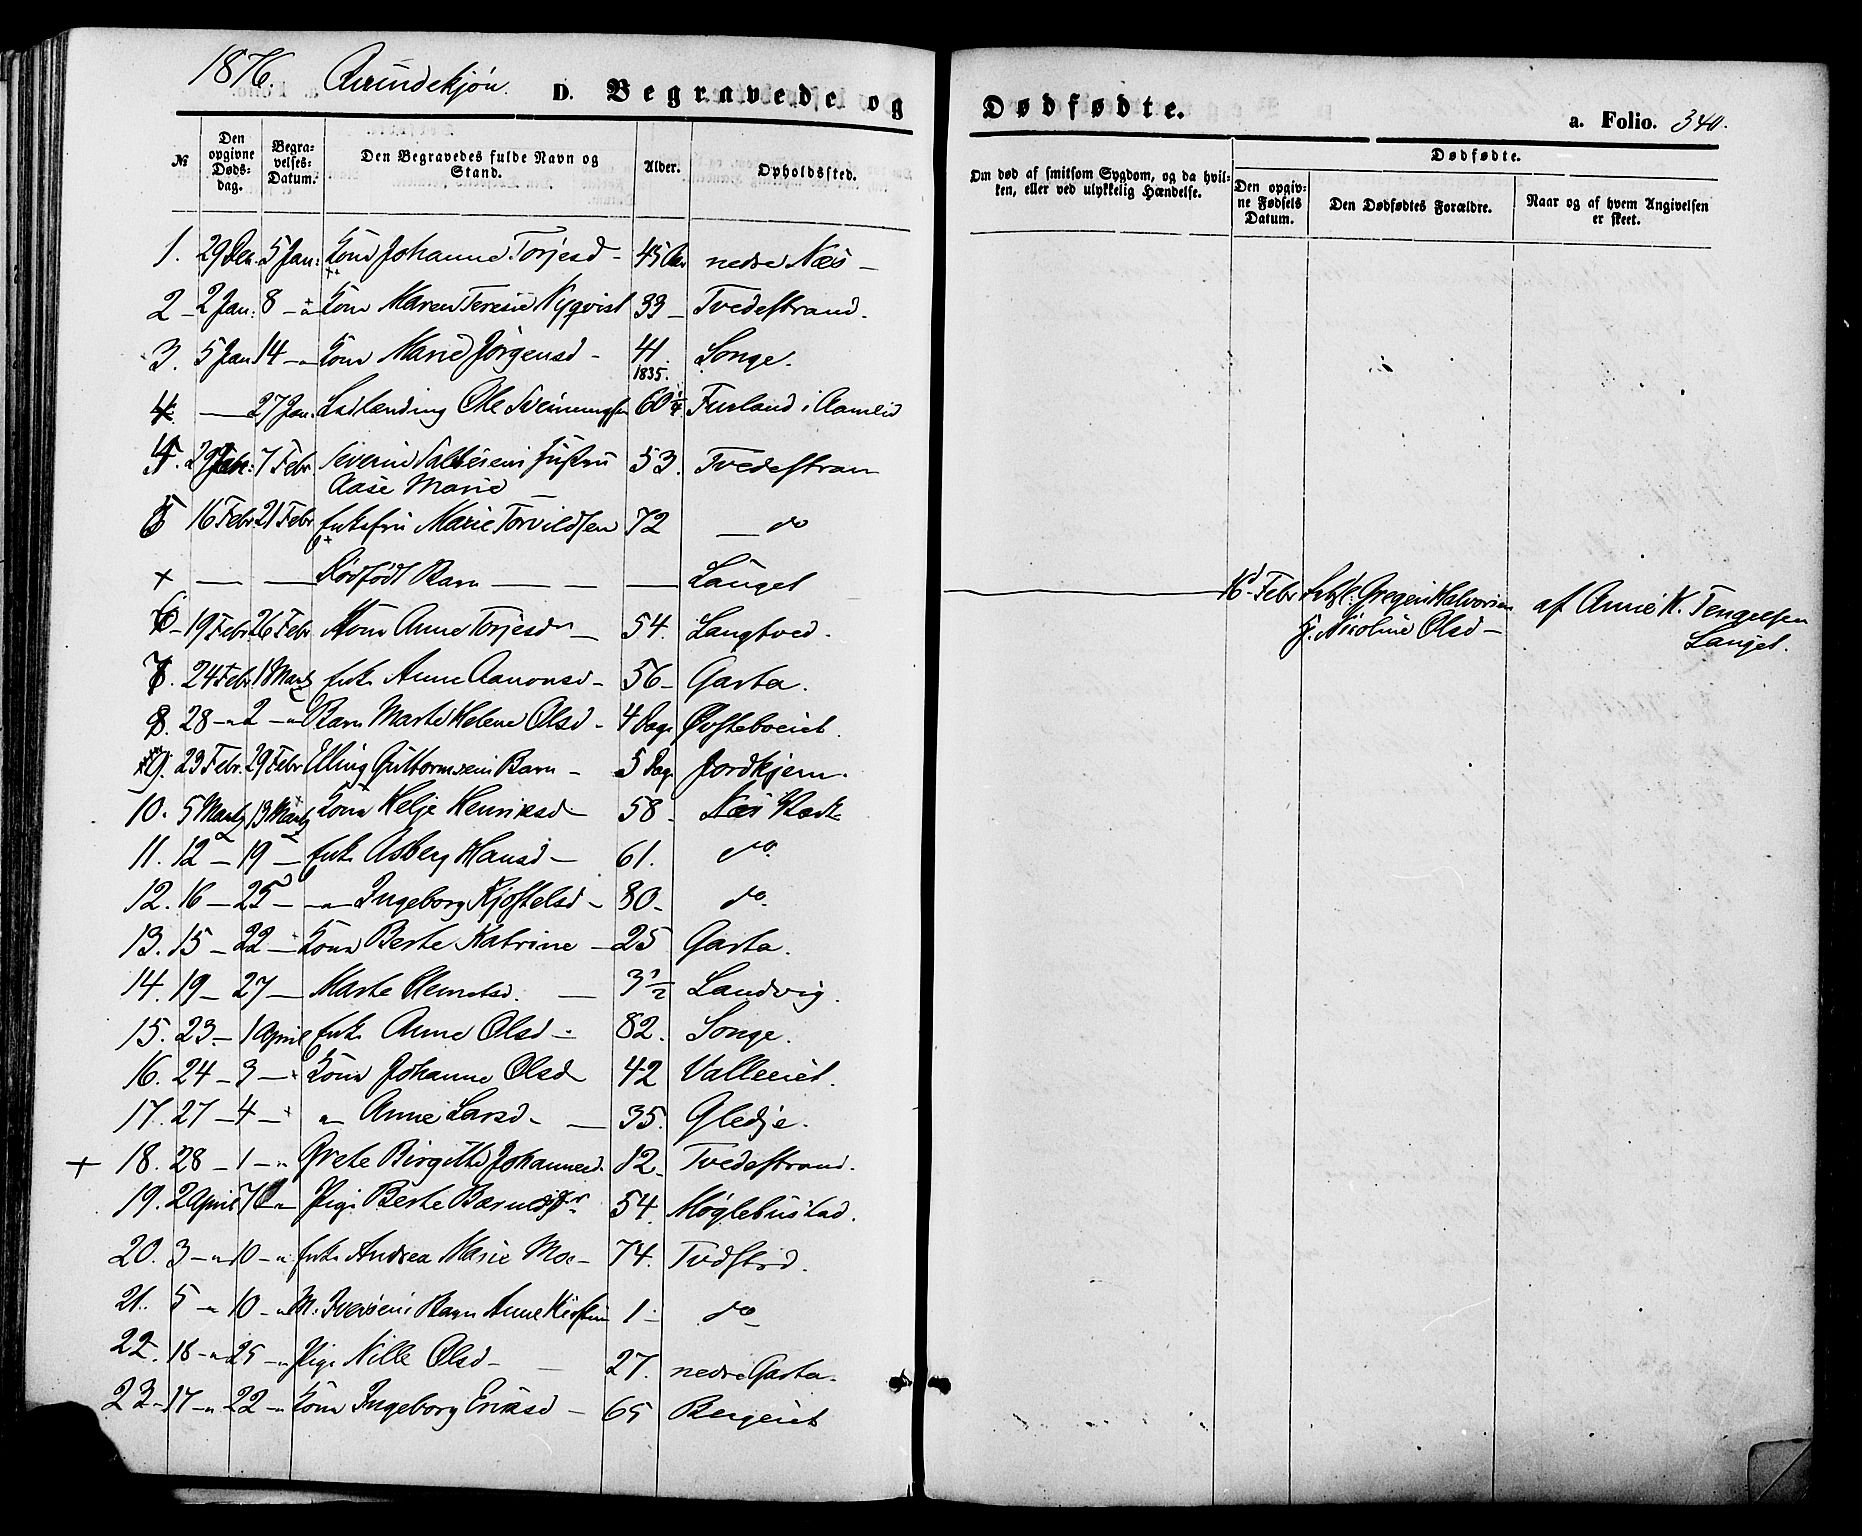 1876. Qvindekjøn. D. Begravede og Dødfødte. a. Folio. 340.
№ Den opgivne Døds-dag. Begra-velses-Datum. Den Begravedes fulde Navn og Stand. Alder. Opholdssted. Om død af smitsom Sygdom, og da hvil-ken, eller ved ulykkelig Hændelse. Dødfødte. Den opgiv-ne Fødsels Datum. Den Dødfødtes Forældre. Naar og af hvem Angivelsen er skeet.
1. 29 Dec. 5 Jan: Kone Johanne Torjesd - 45 Aar nedre Næs -
2 - 2 Jan: 8 - " Kone Maren Teresie Nyqvist 33 - Tvedestrand.
3. 5 Jan 14 - " Kone Marie Jørgensd - 41 Songe.
1835.
4. — 27 Jan. Ladlænding Ole Svenningsen 60 1/4 Furland i Aamlid
4. 7 Febr Severin Saltesens Hustru 53. Tvedestran
Aase Marie
5 16 Febr. 21 Febr Enkefru Marie Torvildsen 72 — do
+ — — Dødfødt Barn — — Langet 16 Febr Gregers Halvorsen af Anne K. Tengelsen
g. Nicoline Olsd - Langet.
6 - 19 Febr 26 Febr Kone Anne Torjesdr - 54. Langtved.
7. 24 Febr 1 Marts Enke Anne Aanonsd - 56 - Gasta.
8. 28 - " 2 - " Barn Marte Helene Olsd - 4 Dage Østeboeiet.
9. 23 Febr. 29 Febr Elling Guttormsens Barn - 5 Dage Jordkjern.
10. 5 Marts 13 Marts Kone Helje Henriksd 58 - Næs Værk
11. 12 - 19 - Enke Asberg Hansd - 61. do.
12. 16 - 25 - - " - Ingeborg Kjøstelsd - 80 - do.
13. 15 - 22 - Kone Berte Katrine - 25 Gasta.
14. 19 - 27 - Marte Clemetsd. — 3 1/2 Landvig.
15. 23 - 1 April Enke Anne Olsd - 82. Songe.
16. 24 - 3 - Kone Johanne Olsd 42 Valleeiet.
17. 27 - 4 - " Anne Larsd - — 35. Gledje.
+ 18. 28 - 1 - " Grete Birgitte Johannesd. 12 - Tvedestrand.
19. 2 April 7 - " Pige Berte 54. Møglebustad.
20. 3 - " 10 - " Enke Andrea Marie Moe - 74. Tvdstrd.
21. 5 - " 10 - " M. Iversens Barn Anne Kirstin 1 - do -
22. 18 - " 25 - " Pige Nille Olsd - — 27. nedre Gasta.
23 - 17 - " 22 - " Kone Ingeborg Eriksd - 65 Bergeiet